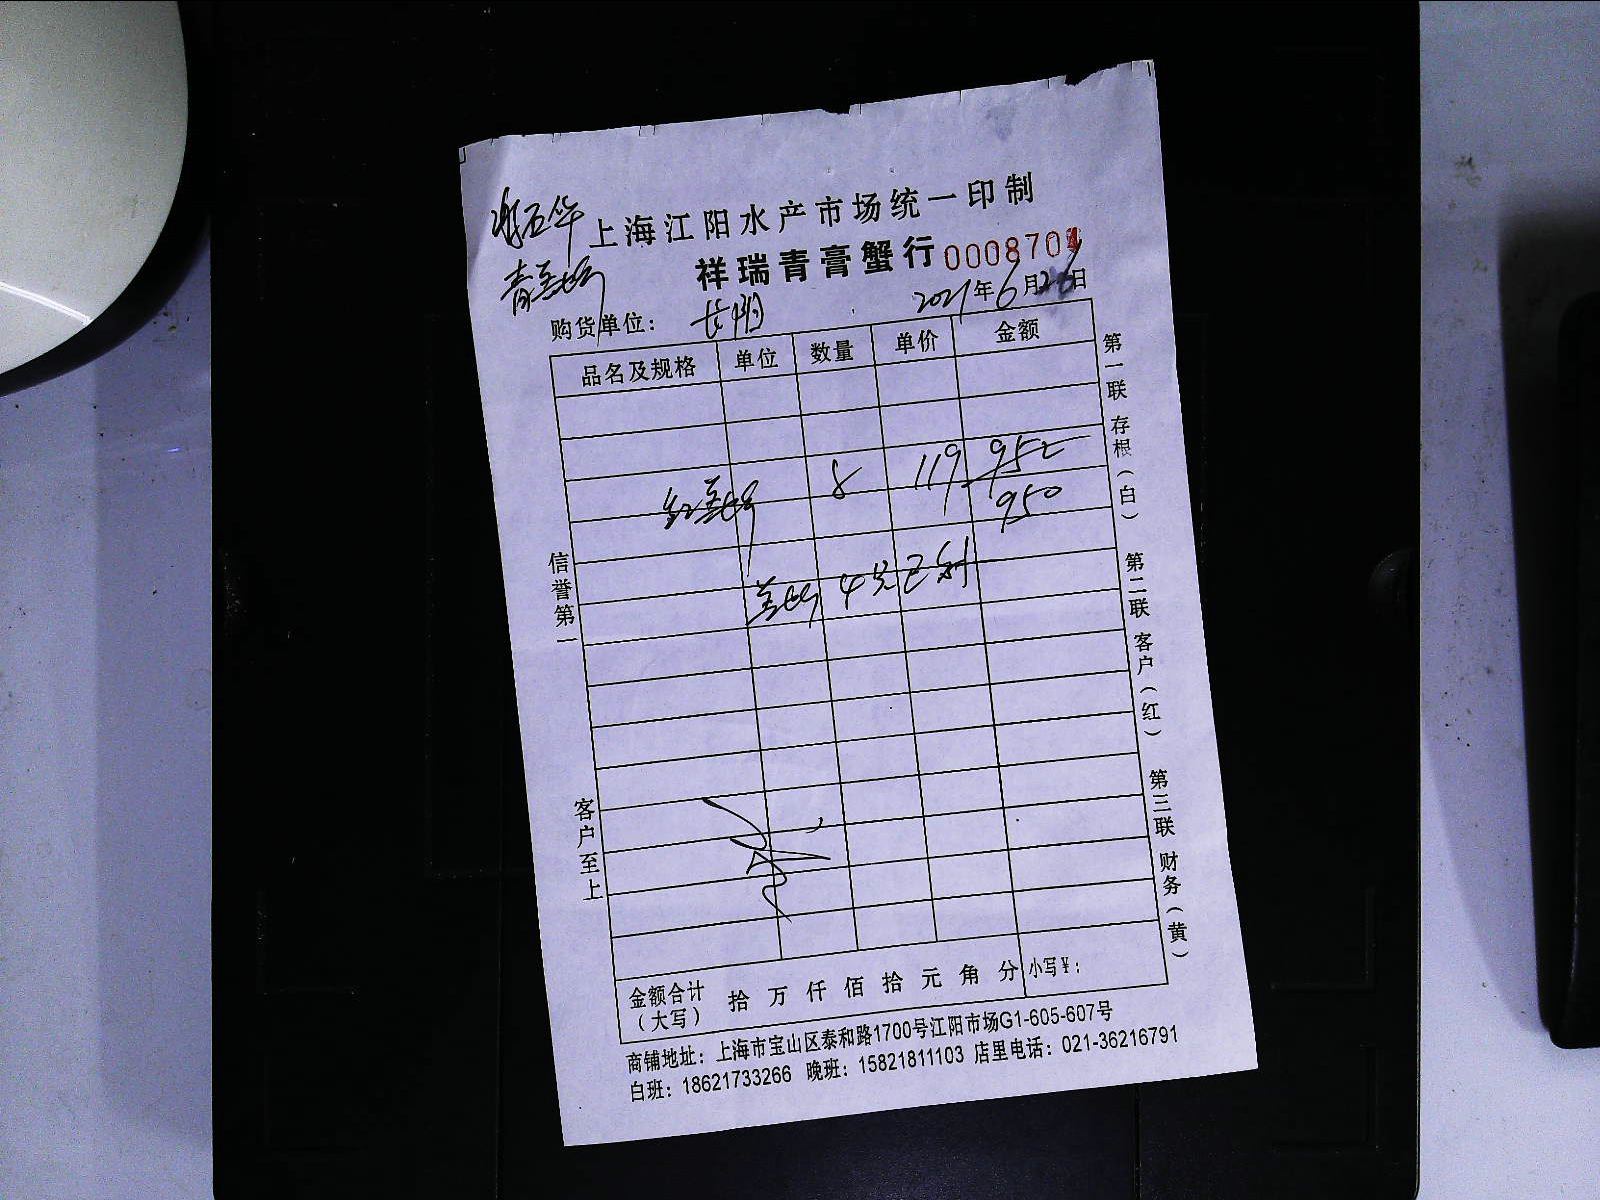 上海江阳水产市场统一印制
祥瑞青膏蟹行 000870
购货单位：
2021年6月26日
品名及规格 单位 数量 单价 金额
8 119 952
950
信誉第一
客户至上
第一联 存根（白）
第二联 客户（红）
第三联 财务（黄）
金额合计（大写） 拾 万 仟 佰 拾 元 角 分 小写¥：
商铺地址：上海市宝山区泰和路1700号江阳市场G1-605-607号
白班：18621733266 晚班：15821811103 店里电话：021-36216791